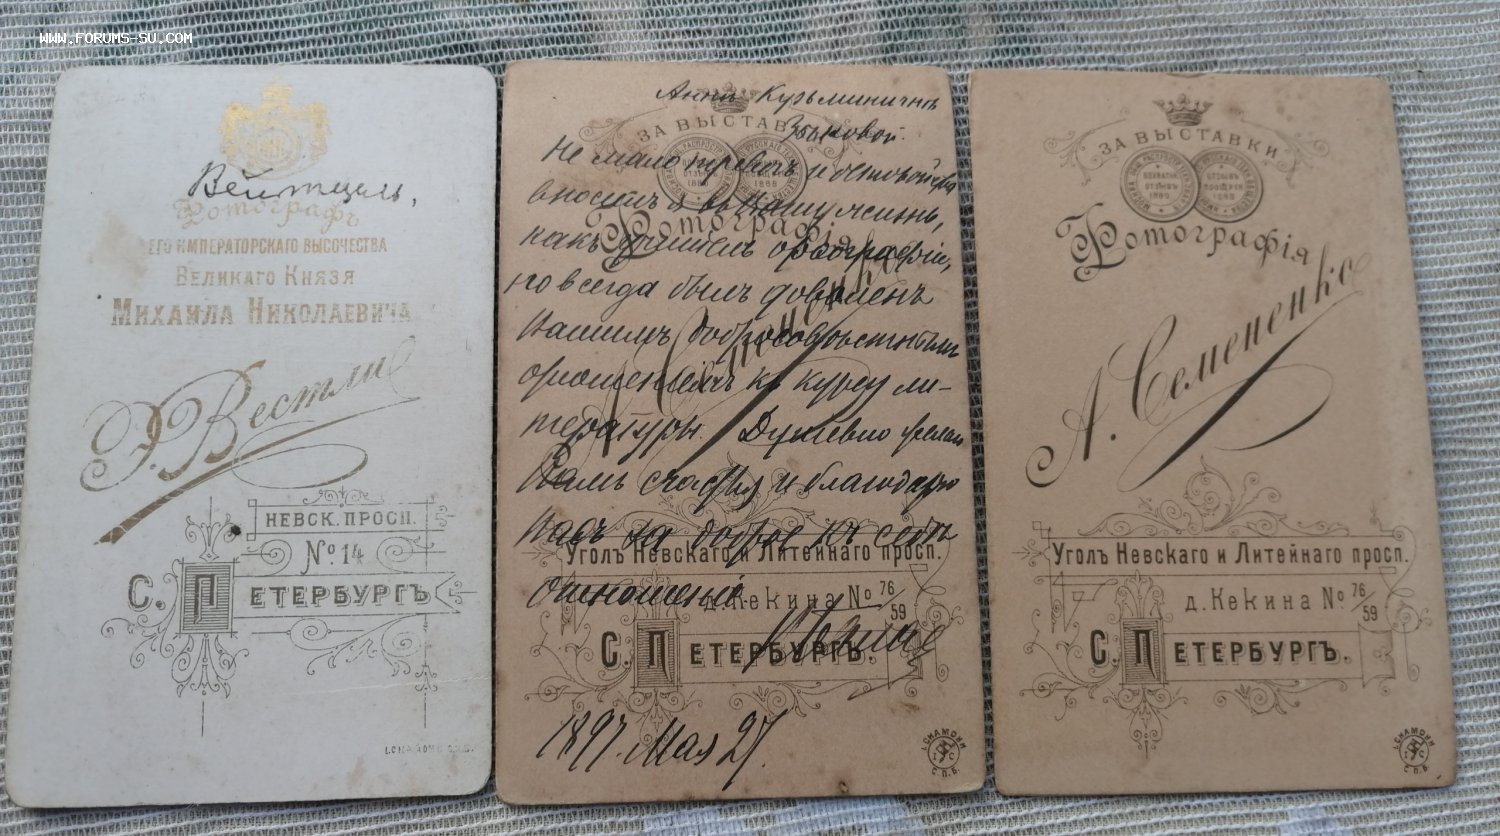 WWW.FORUMS-SU.COM
Вейтцель,
Фотографъ
ЕГО ИМПЕРАТОРСКАГО ВЫСОЧЕСТВА
ВЕЛИКАГО КНЯЗЯ
МИХАИЛА НИКОЛАЕВИЧА
Э. Вестли
НЕВСК. ПРОСП.
№ 14
С. ПЕТЕРБУРГЪ
Аннѣ Кузьминичнѣ
Зыковой.
ЗА ВЫСТАВКИ
Не мало тревогъ и безпокойства
вносилъ я въ Вашу жизнь,
Фотографія
какъ учитель орѳографіи,
но всегда былъ доволенъ
Вашимъ добросовѣстнымъ
отношеніемъ къ курсу ли-
тературы. Душевно желаю
Вамъ счастья и благодарю
Васъ за доброе къ себѣ
Уголъ Невскаго и Литейнаго просп.
отношеніе.
д. Кекина № 76/59
С. ПЕТЕРБУРГЪ.
1897. Мая 27.
I. СНАМОНИ
С.П.Б.
ЗА ВЫСТАВКИ
Фотографія
А. Семененко
Уголъ Невскаго и Литейнаго просп.
д. Кекина № 76/59
С. ПЕТЕРБУРГЪ.
I. СНАМОНИ
С.П.Б.